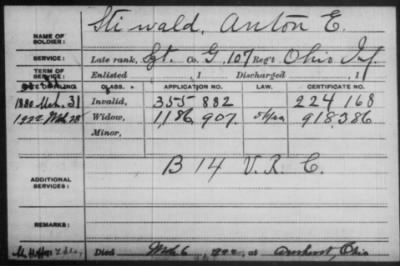 NAME OF SOLDIER: Stiwald, Anton E.
SERVICE: Late rank, Sgt. Co. G, 107 Reg't Ohio Inf.
TERM OF SERVICE: Enlisted , 1 Discharged , 1
DATE OF FILING. CLASS. APPLICATION NO. LAW. CERTIFICATE NO.
1880 Mch. 31 Invalid, 355 882 224 168
1922 Mch 28 Widow, 1186 907 918,386
Minor,
ADDITIONAL SERVICES: B 14 V. R. C.
REMARKS:
Died Mch 6 1922, at Amherst, Ohio